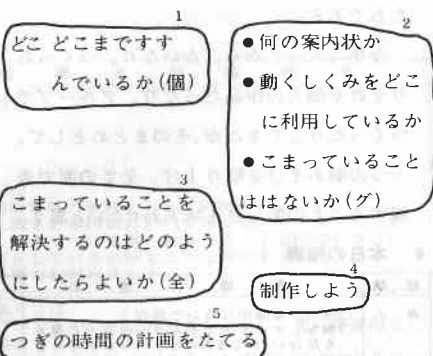 1
どこ どこまですす
んでいるか(個)
2
●何の案内状か
●動くしくみをどこ
に利用しているか
●こまっていること
ははないか(グ)
3
こまっていることを
解決するのはどのよう
にしたらよいか(全)
4
制作しよう
5
つぎの時間の計画をたてる